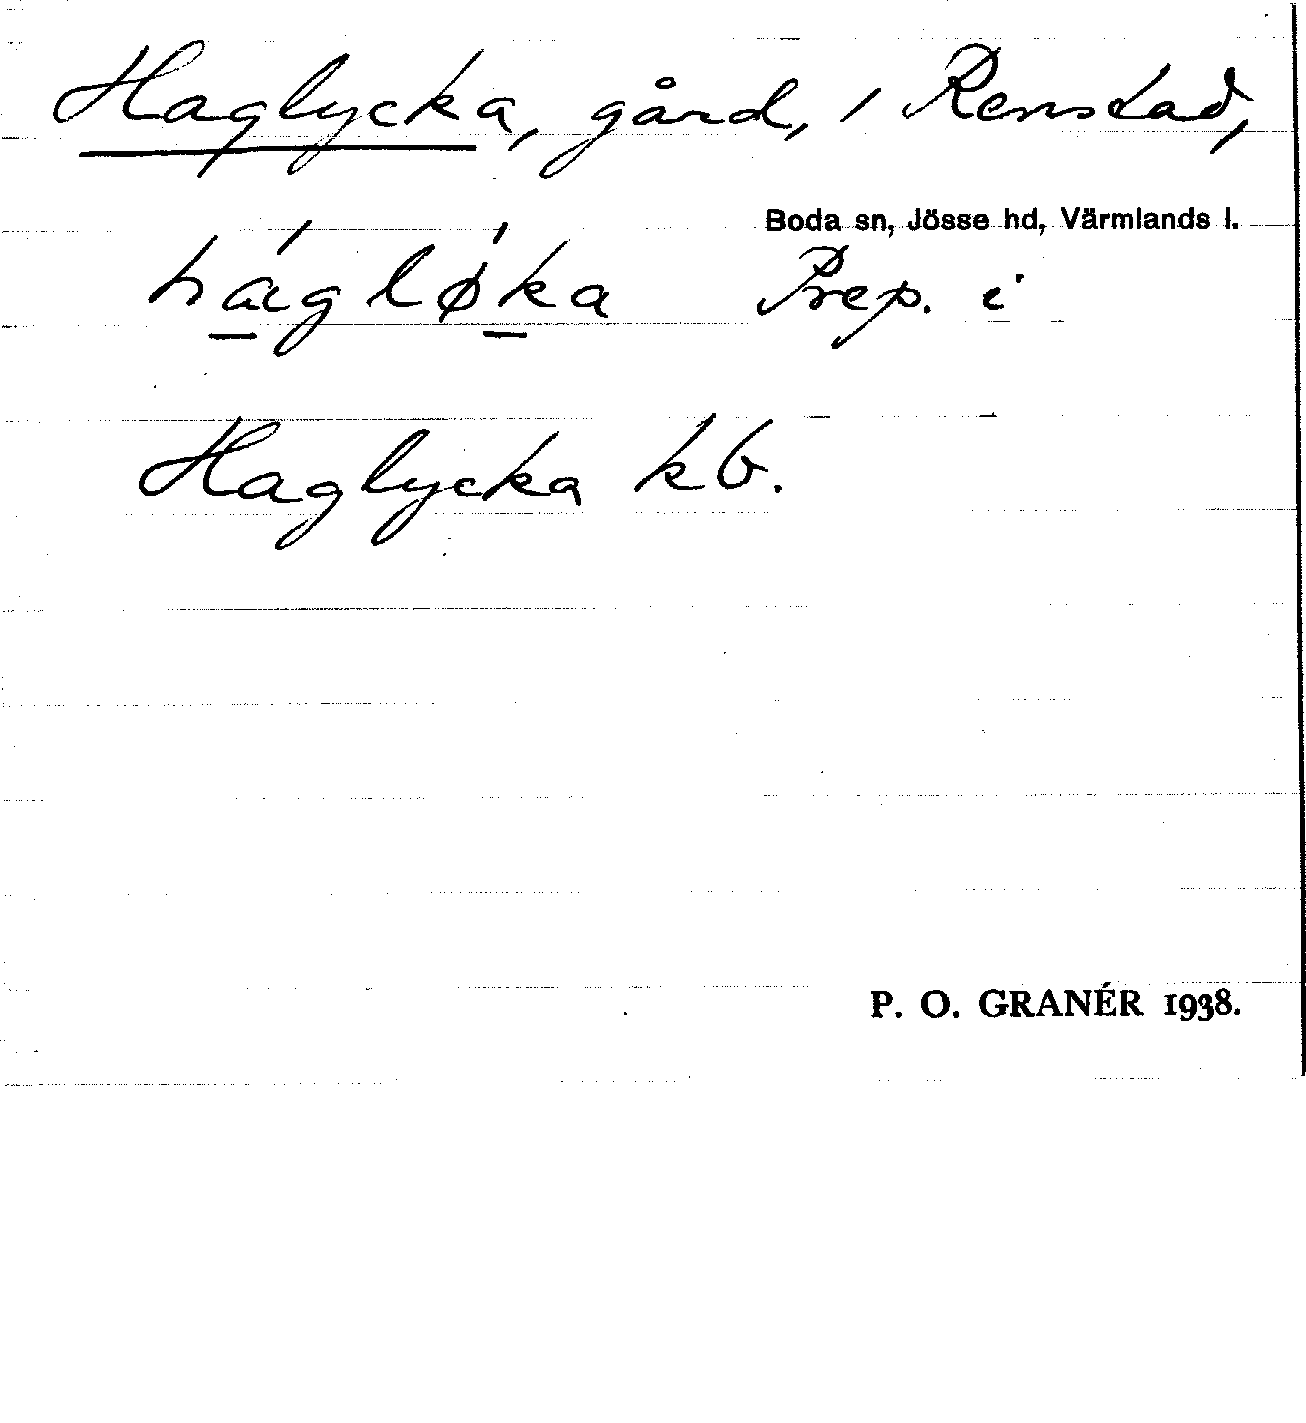 Haglycka, gård, i Renstad,
Boda sn, Jösse hd, Värmlands l.
háglǿka Prep. i
Haglycka kb.
P. O. GRANÉR 1938.